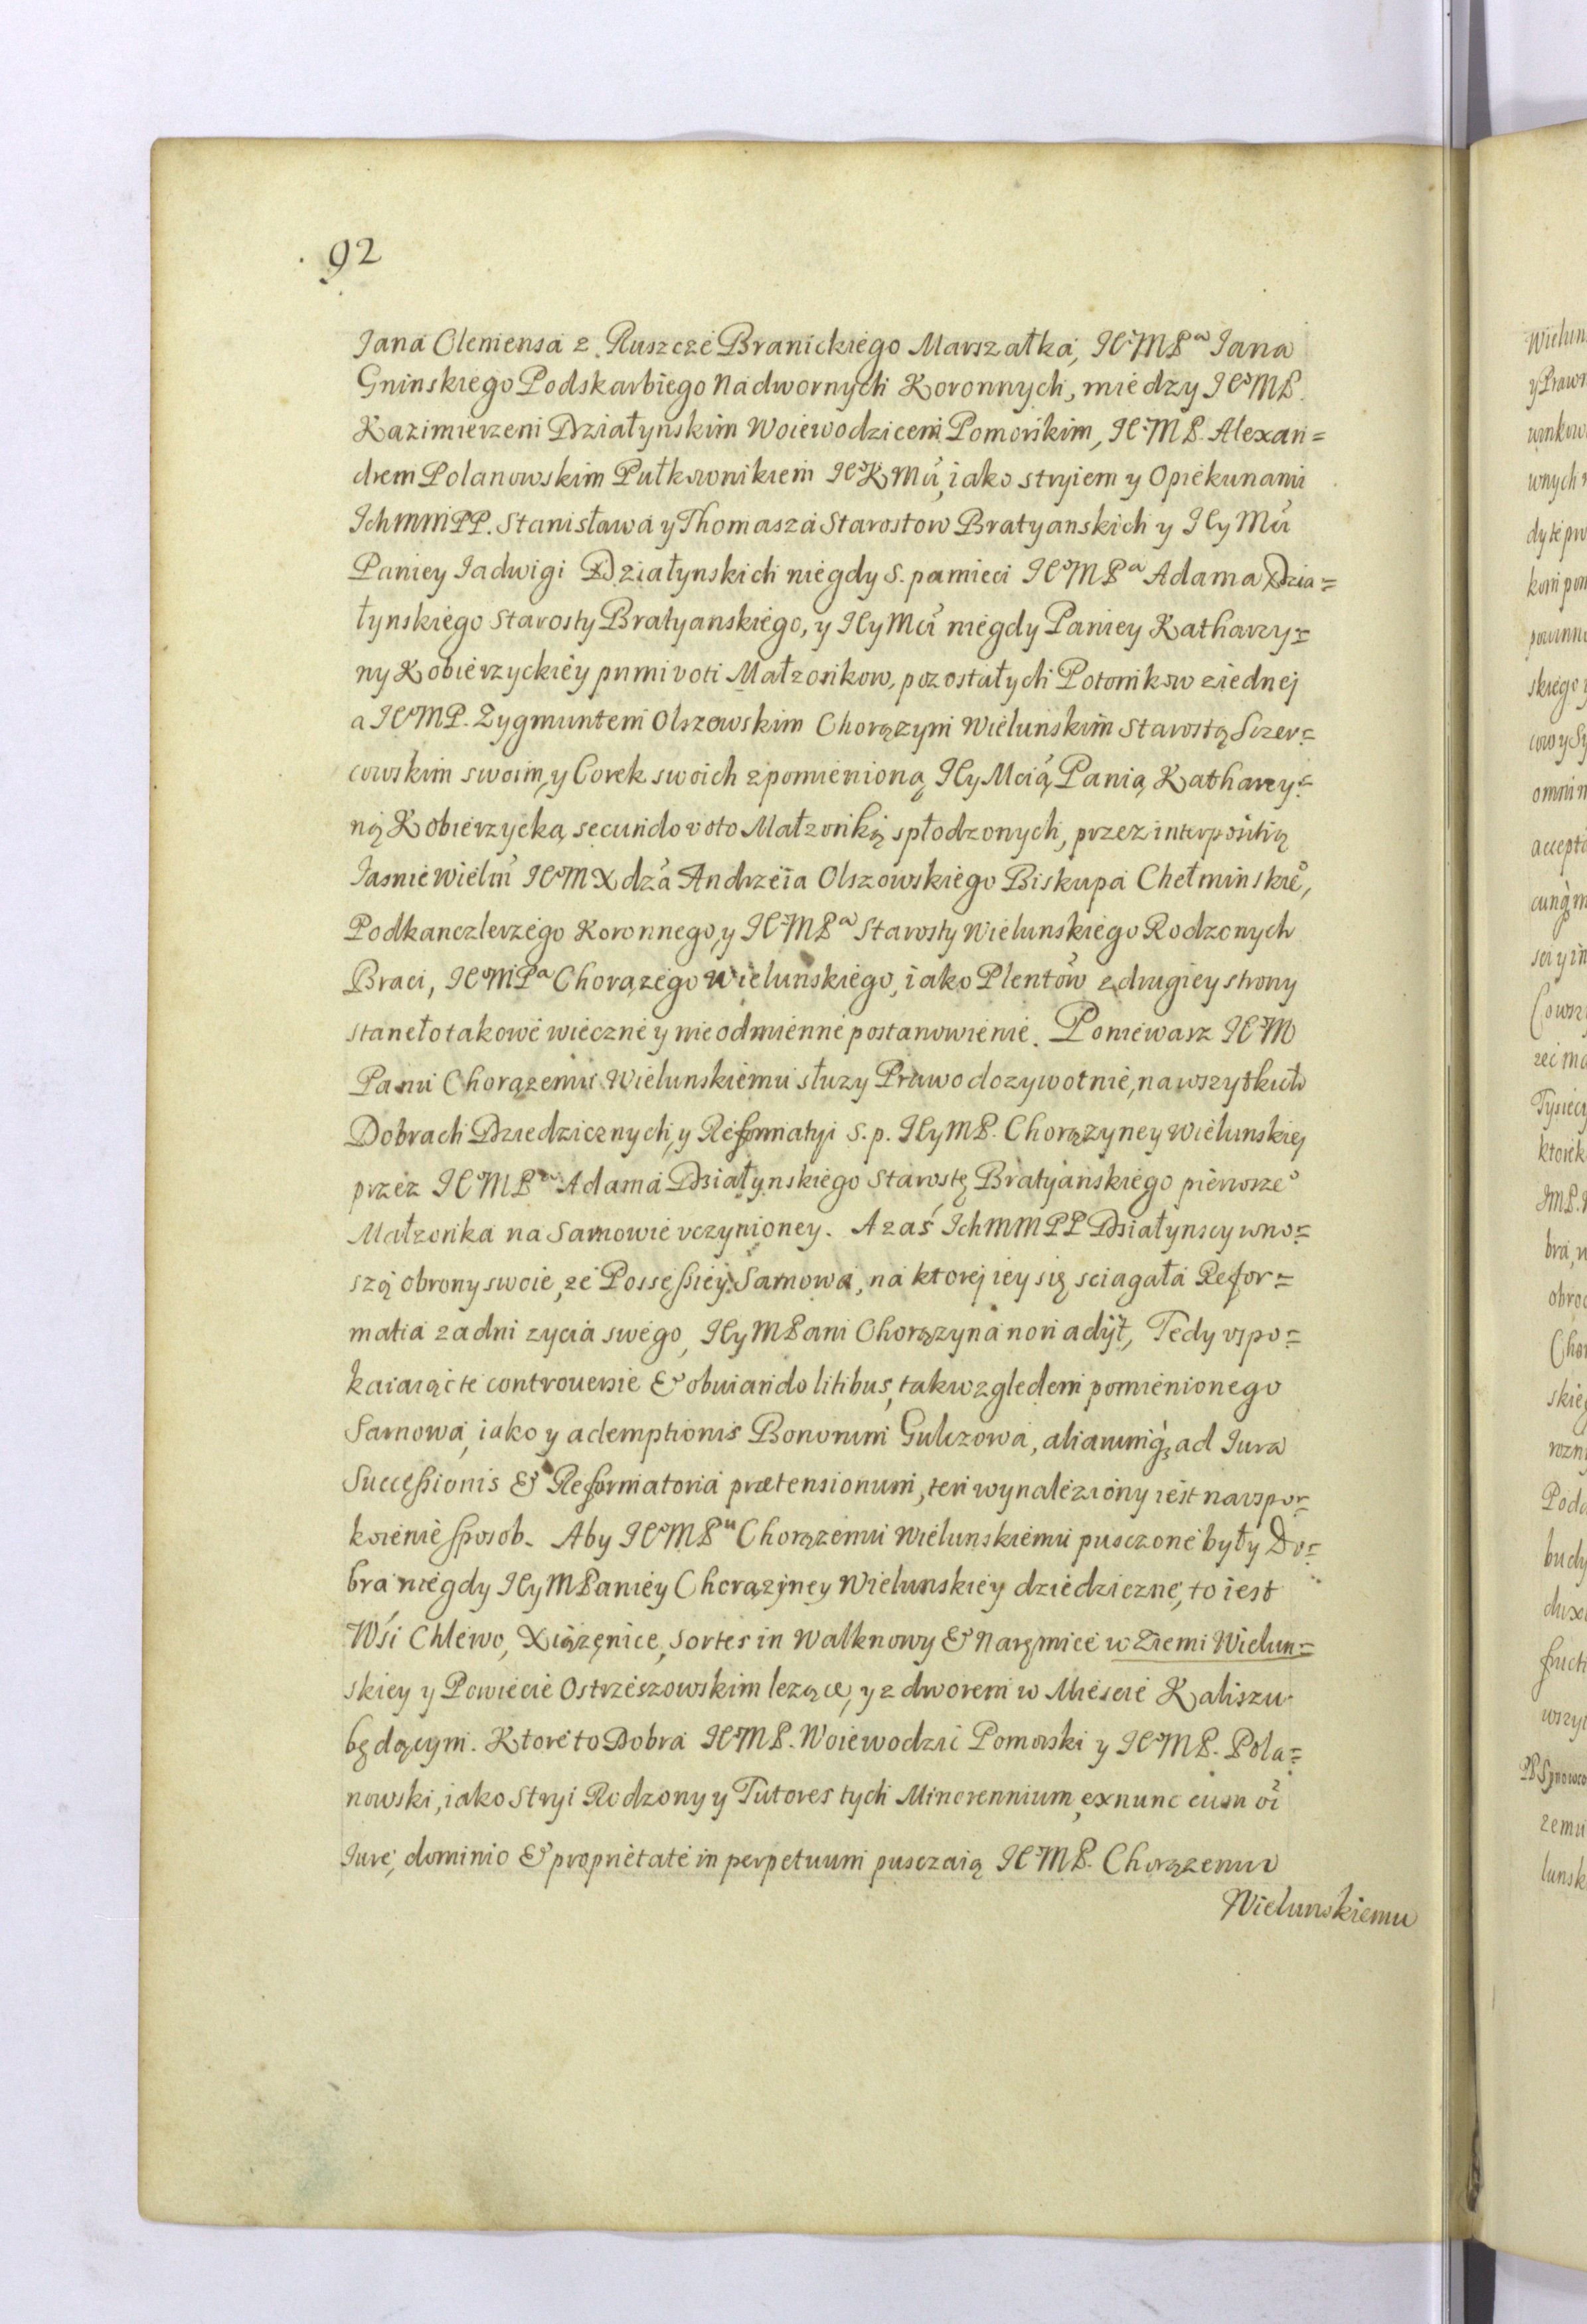 92
Jana Cleniensa z Ruszcze Branickiego Marszałka, JeoMPa Jana
Gninskiego Podskarbiego Nadwornych Koronnych, miedzy JeoMP.
Kazimierzem Działynskim Woiewodzicem Pomorskim, JeoMP. Alexan=
drem Polanowskim Pułkownikiem JeoKMci, iako stryiem y Opiekunami
IchmmPP. Stanisława y Thomasza Starostow Bratyanskich y Jey Mci
Paniey Jadwigi Działynskich niegdy S. pamieci JeoMPa Adama Dzia=
łynskiego Starosty Bratyanskiego, y Jey Mci niegdy Paniey Katharzy=
ny Kobierzyckiey primi voti Małzonkow, pozostałych Potomkow z iednej
a JeoMP. Zygmuntem Olszowskim Chorązym Wielunskim Starostą Szczer=
cowskim swoim, y Corek swoich z pomienioną Jey Mcią Panią Katharzy=
ną Kobierzycką secundo voto Małzonką spłodzonych, przez interpositią
Jasnie Wielm JeoM Xdza Andrzeia Olszowskiego Biskupa Chełminskieo,
Podkanczlerzego Koronnego, y JeoMPa Starosty Wielunskiego Rodzonych
Braci, JeoMPa Chorązego Wielunskiego, iako Plentow z drugiey strony
staneło takowe wieczne y nieodmienne postanowienie. Poniewasz JeoM
Panu Chorązemu Wielunskiemu słuzy Prawo dozywotnie, na wszytkich
Dobrach Dziedzicznych, y Reformatyi S. p. JeyMP. Chorązyney Wielunskiej
przez JeoMPa Adama Działynskiego Starostę Bratyanskiego pierwszeo
Małzonka na Sarnowie vczynioney. A zaś IchmmPP Działynscy wno=
szą obrony swoie, ze Possessiey Sarnowa, na ktorej iey się sciagała Refor=
matia za dni zycia swego, JeyMPani Chorązyna non adijt, Tedy vspo=
kaiaiąc te controuersie & obuiando litibus, tak względem pomienionego
Sarnowa, iako y ademptionis Bonorum Gulczowa, aliarumq, ad Jura
Successionis & Reformatoria prætensionum, ten wynaleziony iest na vspo=
koienie sposob. Aby JeoMPu Chorązemu Wielunskiemu pusczone były Do=
bra niegdy JeyMPaniey Chorązyney Wielunskiey dziedziczne, to iest
Wśi Chlewo, Xiązęnice, Sortes in Walknowy & Naręmice w Ziemi Wielun=
skiey y Powiecie Ostrzeszowskim lezące, y z dworem w Miescie Kaliszu
będącym. Ktore to Dobra JeoMP. Woiewodzic Pomorski y JeoMP. Pola=
nowski, iako Stryi Rodzony y Tutores tych Minorennium, exnunc cum oi
Jure, dominio & proprietate in perpetuum pusczaią JeoMP. Chorązemu
Wielunskiemu